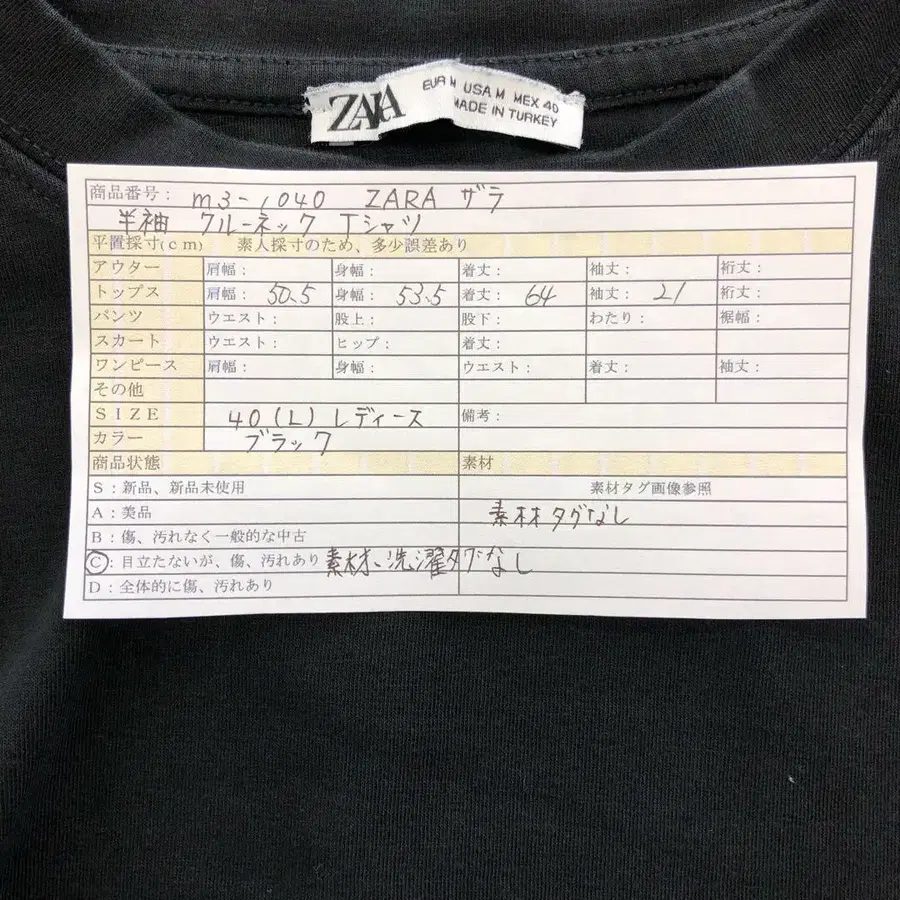 ZARA
EUR M USA M MEX 40
MADE IN TURKEY
商品番号: m3-1040 ZARA ザラ
半袖 クルーネック Tシャツ
平置採寸(cm) 素人採寸のため、多少誤差あり
アウター 肩幅: 身幅: 着丈: 袖丈: 裄丈:
トップス 肩幅: 50.5 身幅: 53.5 着丈: 64 袖丈: 21 裄丈:
パンツ ウエスト: 股上: 股下: わたり: 裾幅:
スカート ウエスト: ヒップ: 着丈:
ワンピース 肩幅: 身幅: ウエスト: 着丈: 袖丈:
その他
SIZE 40(L) レディース 備考:
カラー ブラック
商品状態 素材
S:新品、新品未使用 素材タグ画像参照
A:美品 素材タグなし
B:傷、汚れなく一般的な中古
C:目立たないが、傷、汚れあり 素材、洗濯タグなし
D:全体的に傷、汚れあり